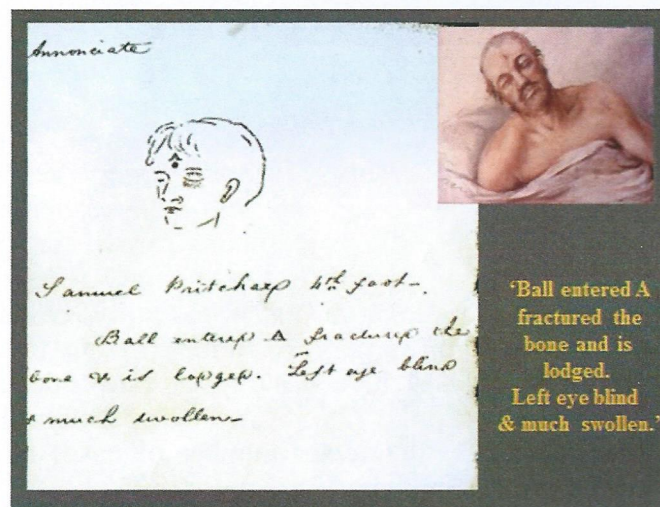 Annonciate
A
Samuel Pritchard 4th foot-.
Ball entered A fractured the
bone & is lodged. Left eye blind
& much swollen-
'Ball entered A
fractured the
bone and is
lodged.
Left eye blind
& much swollen.'